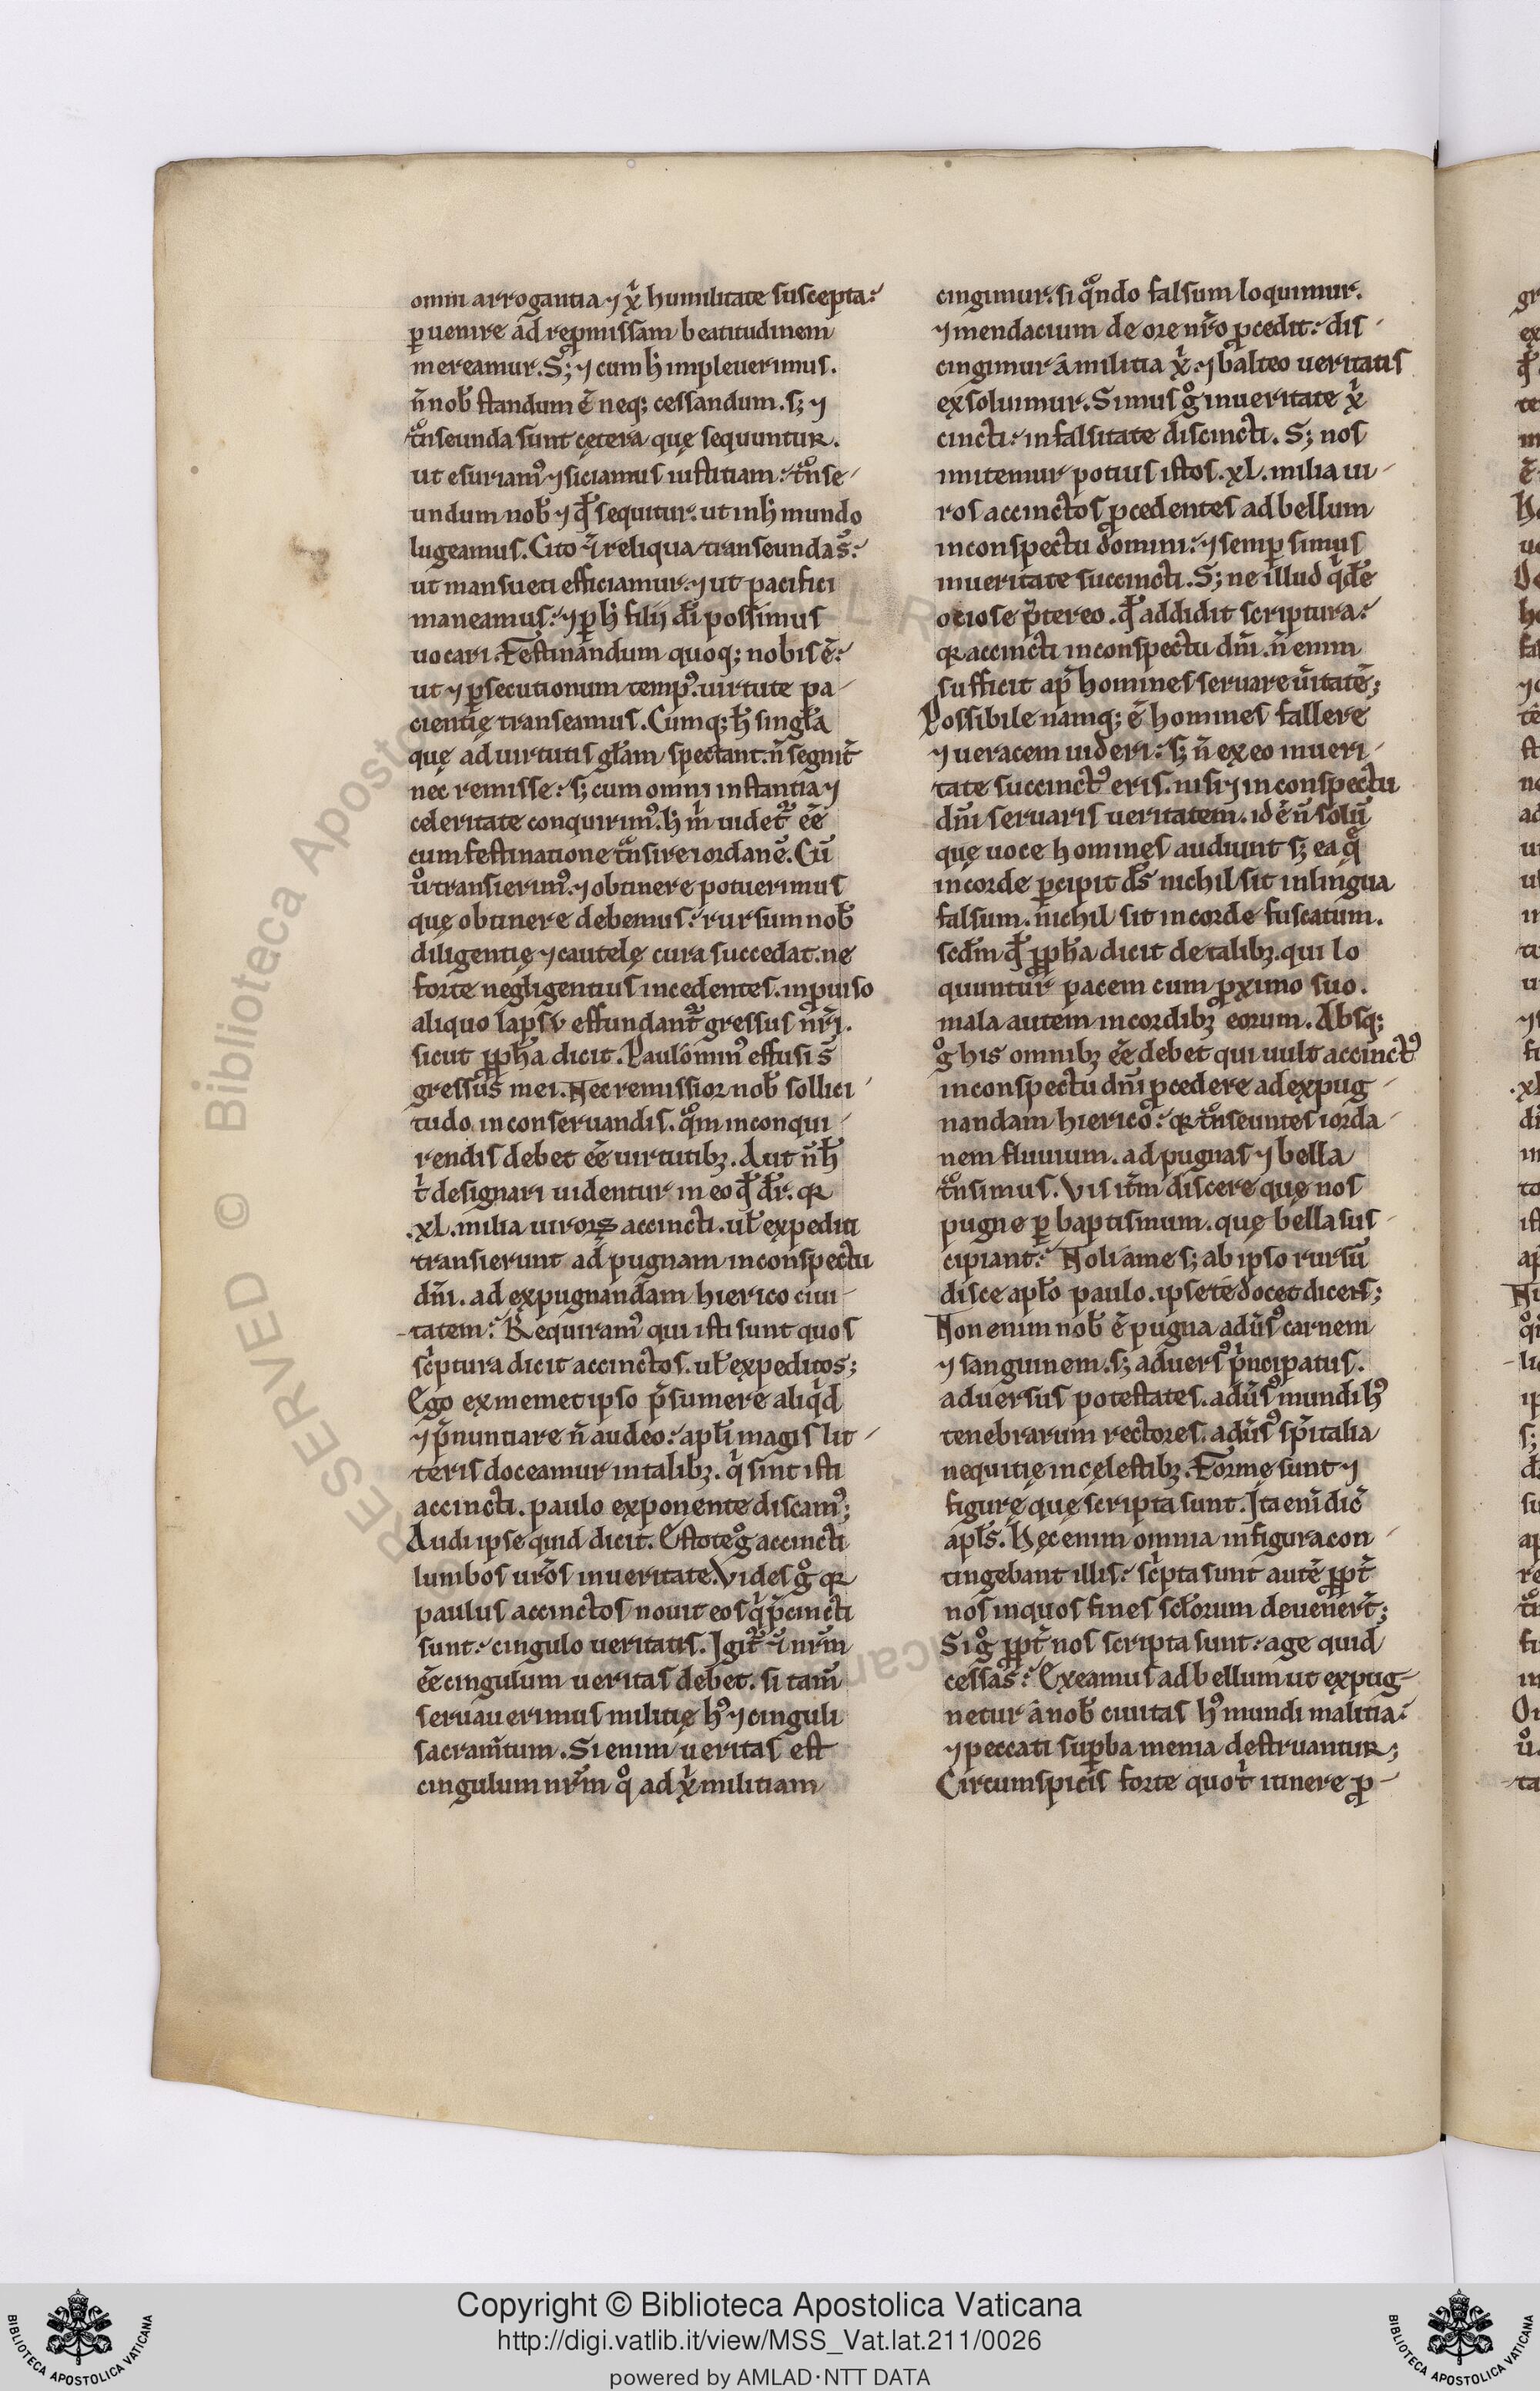 omni arrogantia ⁊ xp̄i humilitate suscepta:
ꝑuenire ad reꝓmissam beatitudinem
mereamur. S; ⁊ cum h̄ impleuerimus.
n̄ nob̄ standum ē neq; cessandum. s; ⁊
tn̄seunda sunt cętera quę sequuntur.
ut esuriam᷒ ⁊ siciamus iustitiam: tn̄se-
undum nob̄ ⁊ qd̄ sequitur. ut in h̄ mundo
lugeamus. Cito ⁊ reliqua transeunda s̄:
ut mansueti efficiamur. ⁊ ut pacifici
maneamus: ⁊ ꝑ h̄ filij dī possimus
uocari. Festinandum quoq; nobis ē:
ut ⁊ ꝑsecutionum temp᷒. uirtute pa-
cientię transeamus. Cumq; h̄ singl̄a
quę ad uirtutis gl̄am spectant. n̄ segnit̄
nec remisse: s; cum omni instantia ⁊
celeritate conquirim᷒. h̄ m̄ uidet᷑ eē
cum festinatione tn̄sire iordanē. Cū
ů transierim᷒. ⁊ obtinere potuerimus
quę obtinere debemus: rursum nob̄
diligentię ⁊ cautelę cura succedat. ne
forte negligentius incedentes. inꝓuiso
aliquo lapsu effundant᷑ gressus nr̄i.
sicut ꝓph̄a dicit. Paulomin᷒ effusi s̄
gressus mei. Nec remissior nob̄ sollici-
tudo in conseruandis. qm̄ in conqui-
rendis debet eē uirtutib;. Aut n̄ h̄
t̄ designari uidentur in eo qd̄ dr̄. qꝛ
.xl. milia uiroꝝ accincti. ul̄ expediti
transierunt ad pugnam in conspectu
dn̄i. ad expugnandam hierico ciui-
tatem: Requiram᷒ qui isti sunt quos
sc̄ptura dicit accinctos. ul̄ expeditos;
Ego ex memetipso p̄sumere aliqd̄
⁊ p̄nuntiare n̄ audeo: apl̄i magis lit-
teris doceamur in talib;. q̄ sint isti
accincti. paulo exponente discam᷒;
Audi ipse quid dicit. Estote gͦ accincti
lumbos uros̄ in ueritate. Vides gͦ qꝛ
paulus accinctos nouit eos q̄ p̄cincti
sunt: cingulo ueritatis. Igit᷑ ⁊ nr̄m
eē cingulum ueritas debet. si tam̄
seruauerimus militię h᷒ ⁊ cinguli
sacram̄tum. Si enim ueritas est
cingulum nr̄m qͦ ad xp̄i militiam
cingimur. si qn̄do falsum loquimur.
⁊ mendacium de ore nr̄o ꝓcedit: dis-
cingimur a militia xp̄i. ⁊ balteo ueritatis
exsoluimur. Simus gͦ in ueritate xp̄i
cincti: in falsitate discincti. S; nos
imitemur potius istos .xl. milia ui-
ros accinctos ꝓcedentes ad bellum
in conspectu domini: ⁊ semꝑ simus
in ueritate succincti. S; ne illud qd̄ē
ociose p̄tereo. qd̄ addidit scriptura:
qꝛ accincti in conspectu dn̄i. n̄ enim
sufficit ap̄ homines seruare ūitatē;
Possibile namq; ē homines fallere
⁊ ueracem uideri: s; n̄ ex eo in ueri-
tate succinct᷒ eris. nisi ⁊ in conspectu
dn̄i seruaris ueritatem. id ē n̄ solū
quę uoce homines audiunt s; ea q̄
in corde ꝑcipit ds̄ nichil sit in lingua
falsum. nichil sit in corde fuscatum.
scd̄m qd̄ ꝓph̄a dicit de talib;. qui lo
quuntur pacem cum ꝓximo suo.
mala autem in cordib; eorum. Absq;
gͦ his omnib; eē debet qui uult accinct᷒
in conspectu dn̄i ꝓcedere ad expug-
nandam hierico: qꝛ tn̄seuntes iorda-
nem fluuium. ad pugnas ⁊ bella
tn̄simus. Vis it̄m discere quę nos
pugne ꝑ baptismum. quę bella sus-
cipiant: Noli a me s; ab ipso rursū
disce apl̄o paulo. ipse te docet dicens;
Non enim nob̄ ē pugna adūs᷒ carnem
⁊ sanguinem. s; aduers᷒ p̄ncipatus.
aduersus potestates. adūs᷒ mundi h᷒
tenebrarum rectores. adūs᷒ sp̄italia
nequitię in cęlestib;. Formę sunt ⁊
figurę quę scripta sunt. Ita enī dic̄
apl̄s. Hęc enim omnia in figura con-
tingebant illis: sc̄pta sunt autē ꝓpt̄
nos in quos fines scl̄orum deuenert̄;
Si gͦ ꝓpt̄ nos scripta sunt: age quid
cessas: Exeamus ad bellum ut expug-
netur a nob̄ ciuitas h᷒ mundi malitia:
⁊ peccati suꝑba menia destruantur;
Circumspicis forte quot̄ itinere ꝓ-
Copyright © Biblioteca Apostolica Vaticana
http://digi.vatlib.it/view/MSS_Vat.lat.211/0026
powered by AMLAD·NTT DATA
BIBLIOTECA APOSTOLICA VATICANA
BIBLIOTECA APOSTOLICA VATICANA